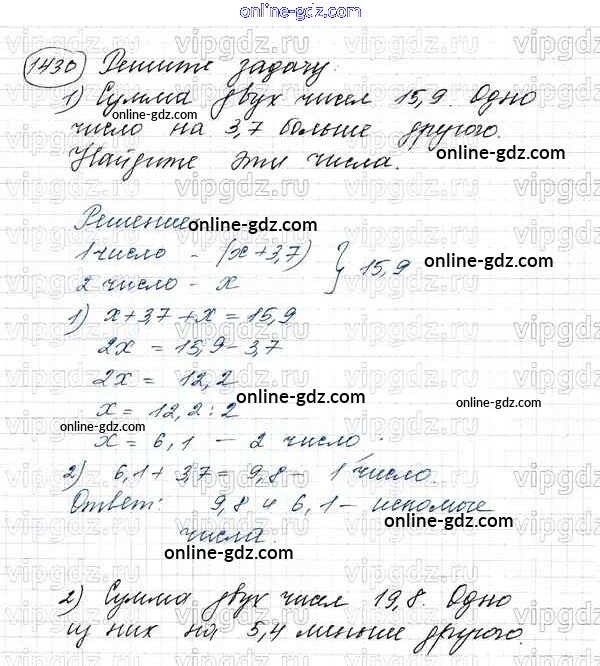 online-gdz.com
1430 Решите задачу.
1) Сумма двух чисел 15,9. Одно
число на 3,7 больше другого.
Найдите эти числа.
Решение:
1 число - (x+3,7) } 15,9
2 число - x
1) x+3,7+x=15,9
2x = 15,9-3,7
2x = 12,2
x = 12,2:2
x = 6,1 - 2 число.
2) 6,1+3,7=9,8- 1 число.
Ответ: 9,8 и 6,1- искомые
числа.
2) Сумма двух чисел 19,8. Одно
из них на 5,4 меньше другого.